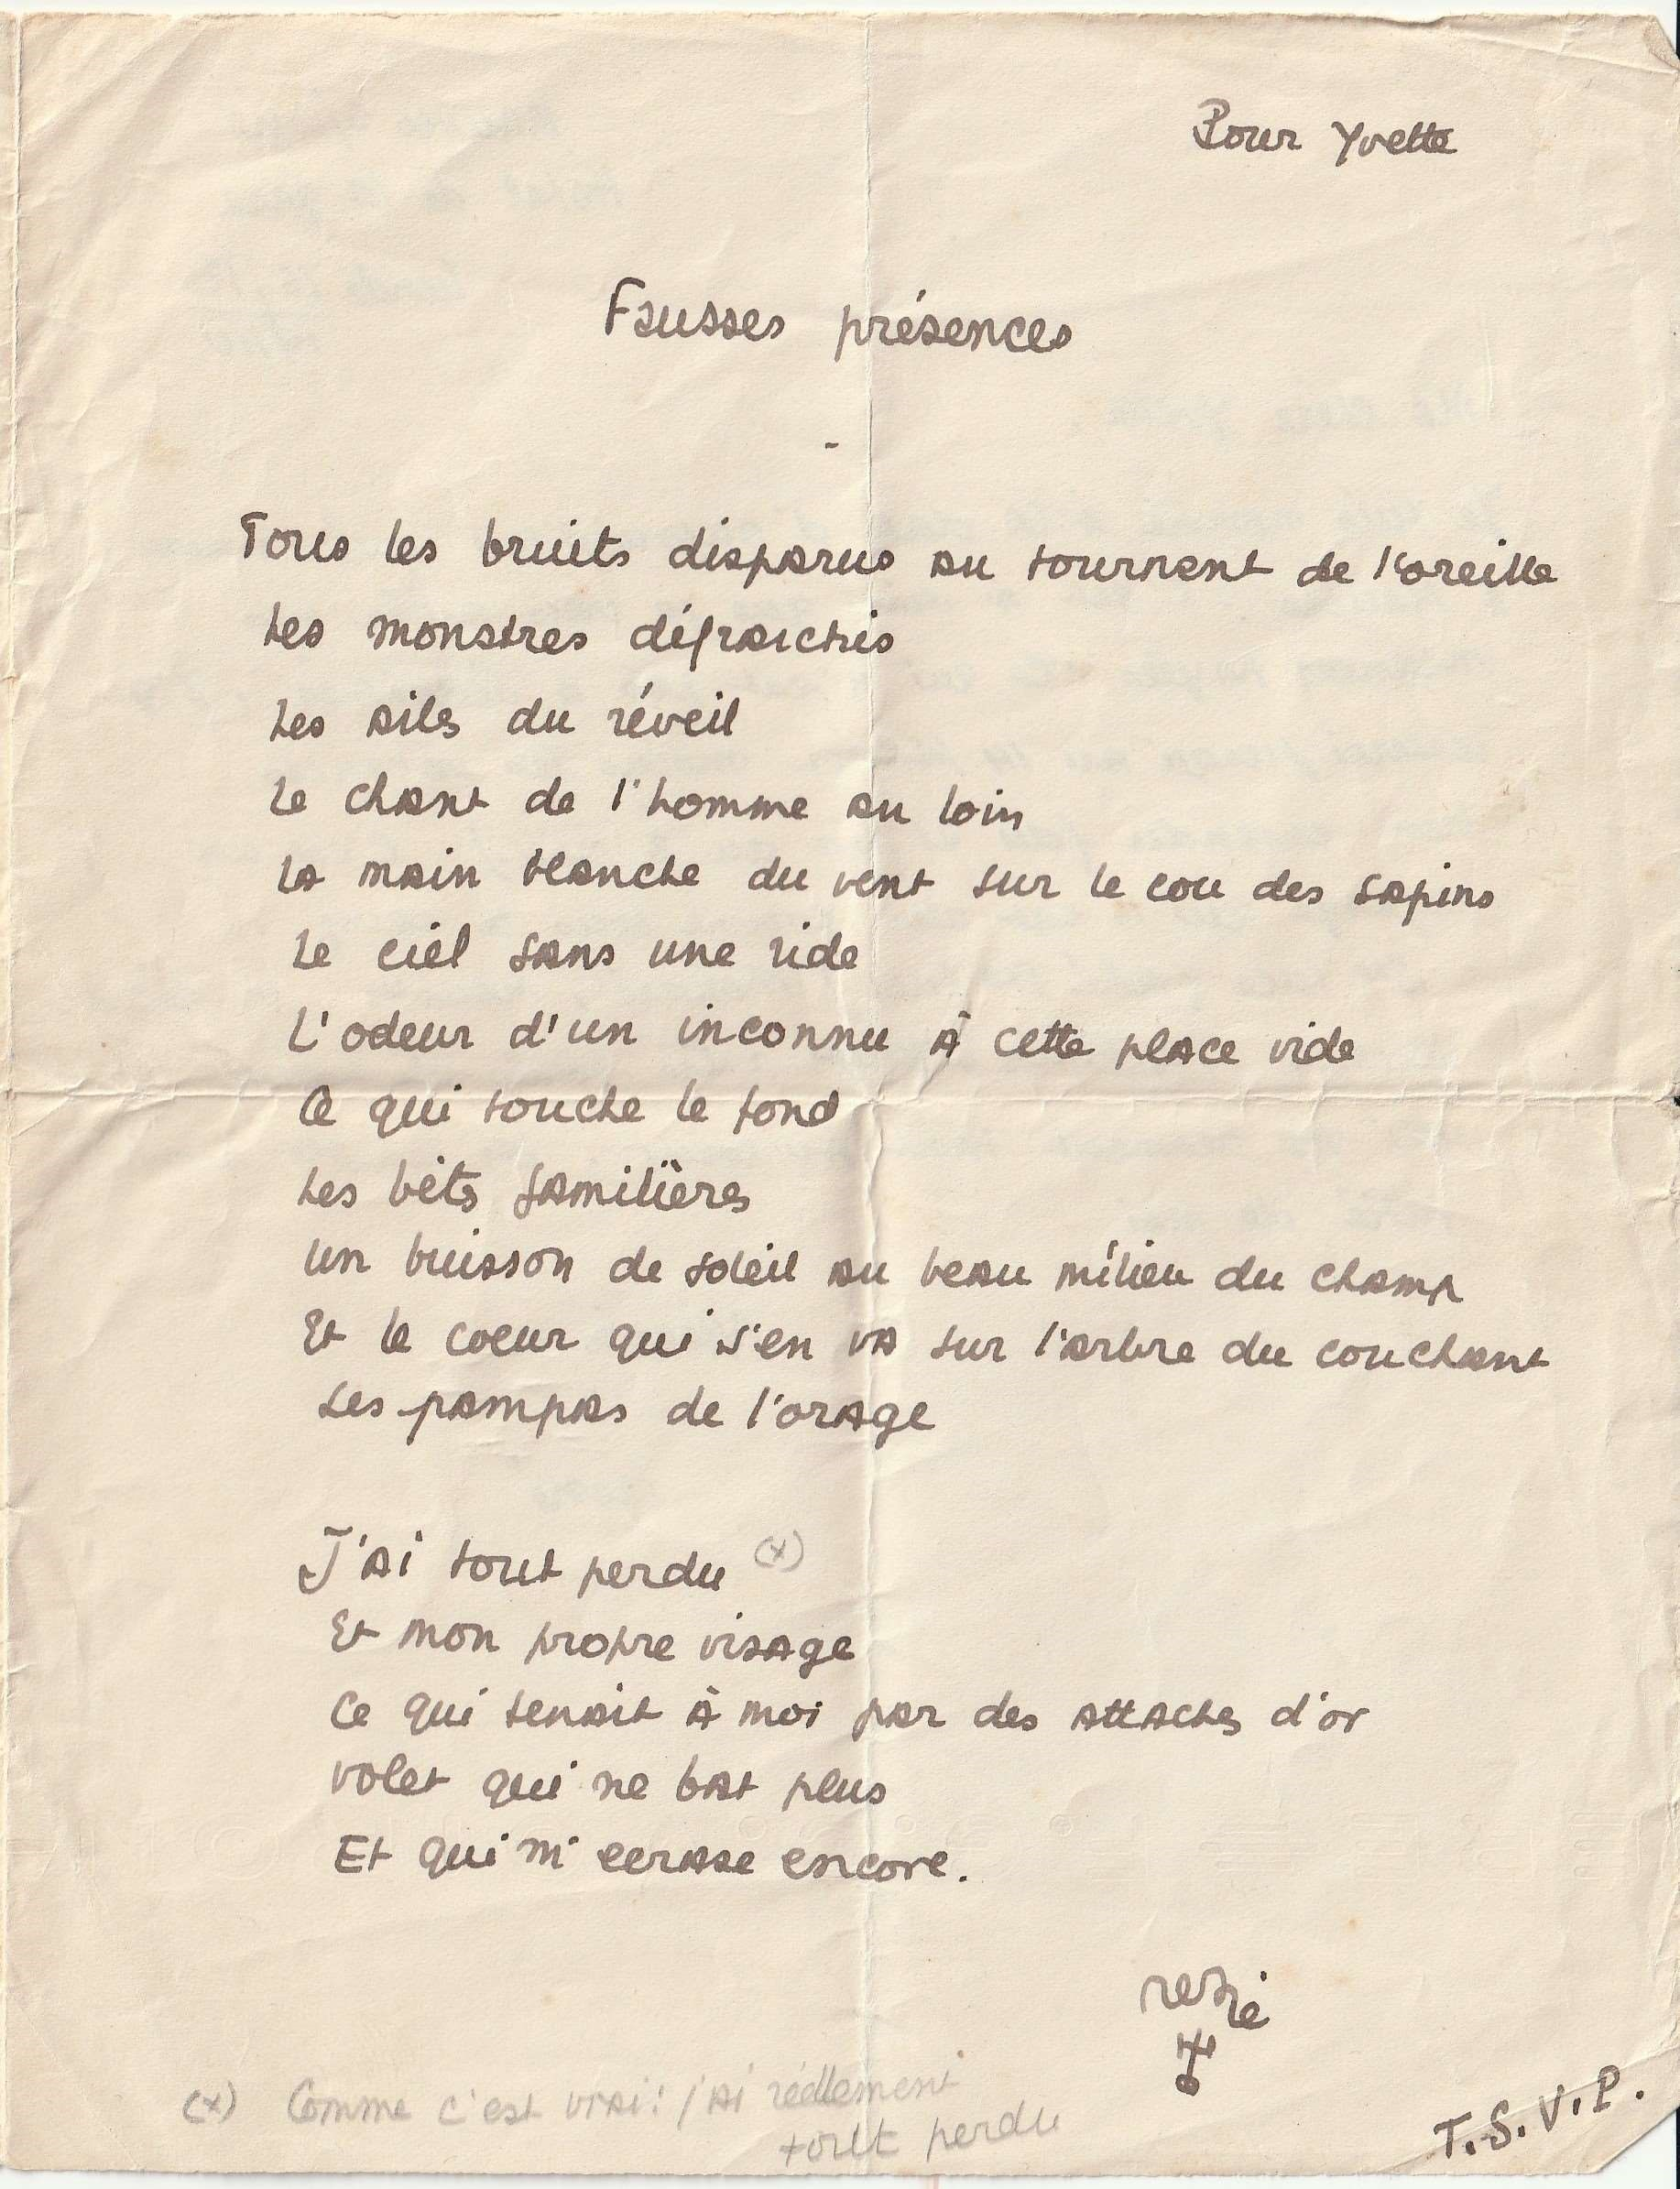 Pour Yvette
Fausses présences
-
Tous les bruits disparus au tournent de l'oreille
Les monstres défraichis
Les ails du réveil
Le chant de l'homme au loin
La main blanche du vent sur le cou des sapins
Le ciel sans une ride
L'odeur d'un inconnu à cette place vide
Ce qui touche le fond
Les bêts familières
Un buisson de soleil au beau milieu du champ
Et le coeur qui s'en va sur l'arbre du couchant
Les pampas de l'orage
J'ai tout perdu (x)
Et mon propre visage
Ce qui tenait à moi par des attaches d'or
volet qui ne bat plus
Et qui m'ecrase encore.
(x) Comme c'est vrai! j'ai réellement
tout perdu
T.S.V.P.